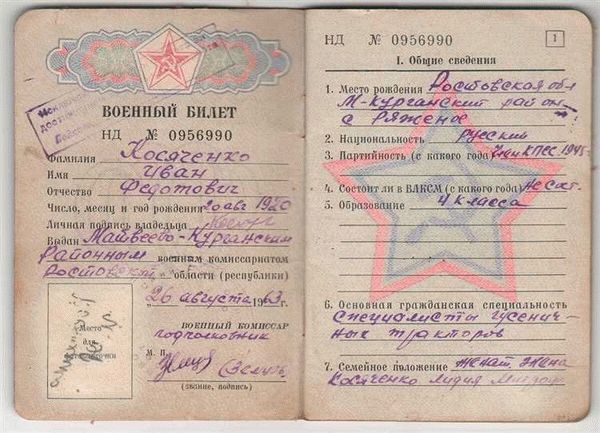 ВОЕННЫЙ БИЛЕТ
НД № 0956990
Фамилия Косяченко
Имя Иван
Отчество Федотович
Число, месяц и год рождения 20 авг 1920
Личная подпись владельца
Выдан Матвеево-Курганским
районным военным комиссариатом
Ростовской области (республики)
26 августа 1963 г.
ВОЕННЫЙ КОМИССАР
подполковник
Место
для
М. П.
(звание, подпись)
НД № 0956990 1
I. Общие сведения
1. Место рождения Ростовская обл
М-Курганский район
с Ряженое
2. Национальность русский
3. Партийность (с какого года) КПСС 1945
4. Состоит ли в ВЛКСМ (с какого года) не сост.
5. Образование 4 класса
6. Основная гражданская специальность
специалисты гусенич-
ных тракторов
7. Семейное положение женат, жена
Косяченко Лидия